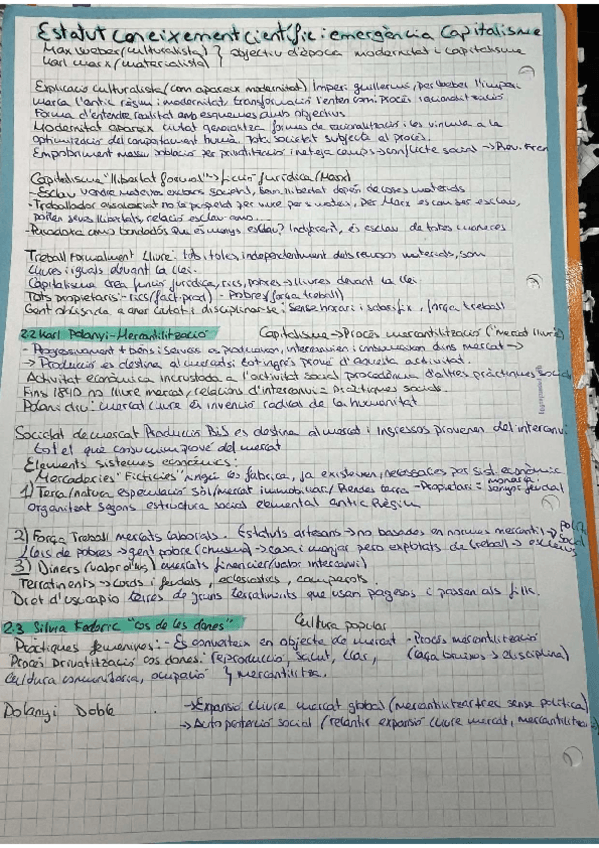 Estatut coneixement científic i emergència Capitalisme
Max Weber (culturalista) } objectiu d'època modernitat i capitalisme
Karl Marx (materialista)
Explicació culturalista (com apareix modernitat) Imperi guillermí, per Weber l'imperi
marca l'antic règim i modernitat, transformació l'entén com procés racionalització
Forma d'entendre realitat amb esquemes amb objectius.
Modernitat apareix ciutat generalitza formes de racionalització i les vincula a la
optimització del comportament humà. Tots societat subjecta al procés.
Empobriment massiu població per privatització i neteja camps → conflicte social → Rev. Fran
Capitalisme "llibertat formal" → ficció jurídica (Marx)
-Esclau
-Treballador assalariat no la propietat per viure per si mateix, per Marx es com ser esclau,
relació esclau amo...
Treball Formalment Lliure: tots i totes, independentment dels recursos materials, som
lliures i iguals devant la llei.
Capitalisme crea ficció jurídica, rics, pobres → lliures devant la llei
Tots propietaris - rics (fact. prod) - Pobres (força treball)
Gent obligada a anar ciutat i disciplinar-se: sense horari i salari fix, força treball
2.2 Karl Polanyi - Mercantilització Capitalisme → Procés mercantilització ("mercat lliure")
- Progressivament + béns i serveis es produeixen, intercanvien i consumeixen dins mercat →
→ Producció es destina al mercat i tot ingrés prové d'aquella activitat.
Activitat econòmica incrustada a l'activitat social procedència d'altres pràctiques socials
Fins 1840 no lliure mercat, relacions d'intercanvi = pràctiques socials.
Polani diu: mercat lliure és invenció radical de la humanitat
Societat de mercat Producció B i S es destina al mercat i Ingressos provenen del intercanvi
tot el que consumim prové del mercat
Elements sistemes econòmics:
Mercaderies "Fictícies" ningú les fabrica, ja existeixen, necessàries per sist. econòmic
1) Terra/natura especulació sòl/mercat immobiliari/ Rendes terra - Propietari = monarca, senyor feudal
Organitzat segons estructura social elemental antic Règim
2) Força Treball mercats laborals. Estatuts artesans → no basades en normes mercantil →
Lleis de pobres → gent pobre (chusma) → casa i menjar però explotats de treball → esclaus
3) Diners (valor d'ús) mercats financier (valor intercanvi)
Terratinents → Lords i feudals, eclesiàstics, camperols.
Dret d'usucapio terres de grans terratinents que usan pagesos i passen als fills.
2.3 Silvia Federic "cos de les dones" Cultura popular
Pràctiques femenines: - Es converteix en objecte de mercat - Procés mercantilització
Procés Privatització cos dones: reproducció, salut, llar, (caça bruixes → disciplina)
cultura comunitària, ocupació } mercantilitza.
Polanyi Doble → Expansió lliure mercat global (mercantilitzar tot sense política)
→ Auto protecció social (relantir expansió lliure mercat,